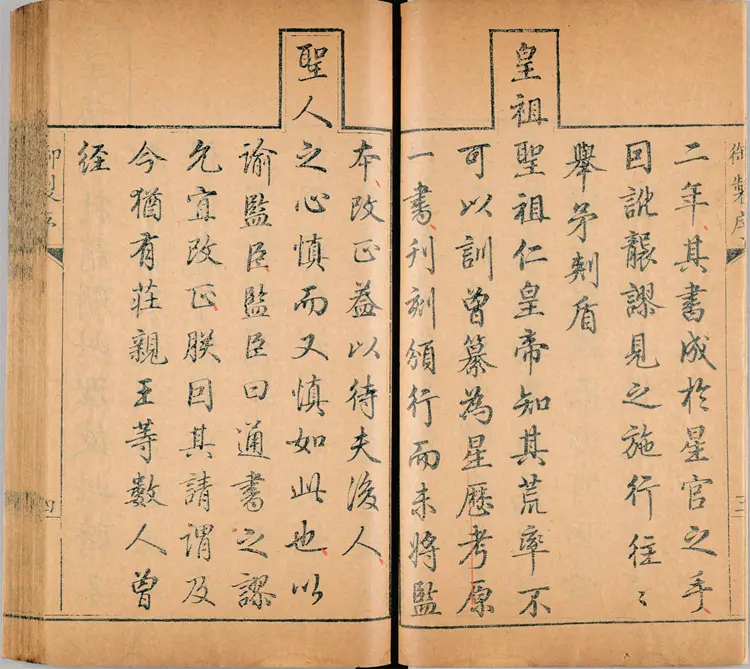 御製序
三
二年其書成於星官之手
囙訛襲謬見之施行往〻
舉矛刺盾
皇祖聖祖仁皇帝知其荒率不
可以訓曾纂為星歷考原
一書刊刻頒行而未將監
本改正葢以待夫後人
聖人之心慎而又慎如此也以
諭監臣監臣曰通書之謬
允宜改正朕囙其請謂及
今猶有莊親王等數人曾
經
御製序
四